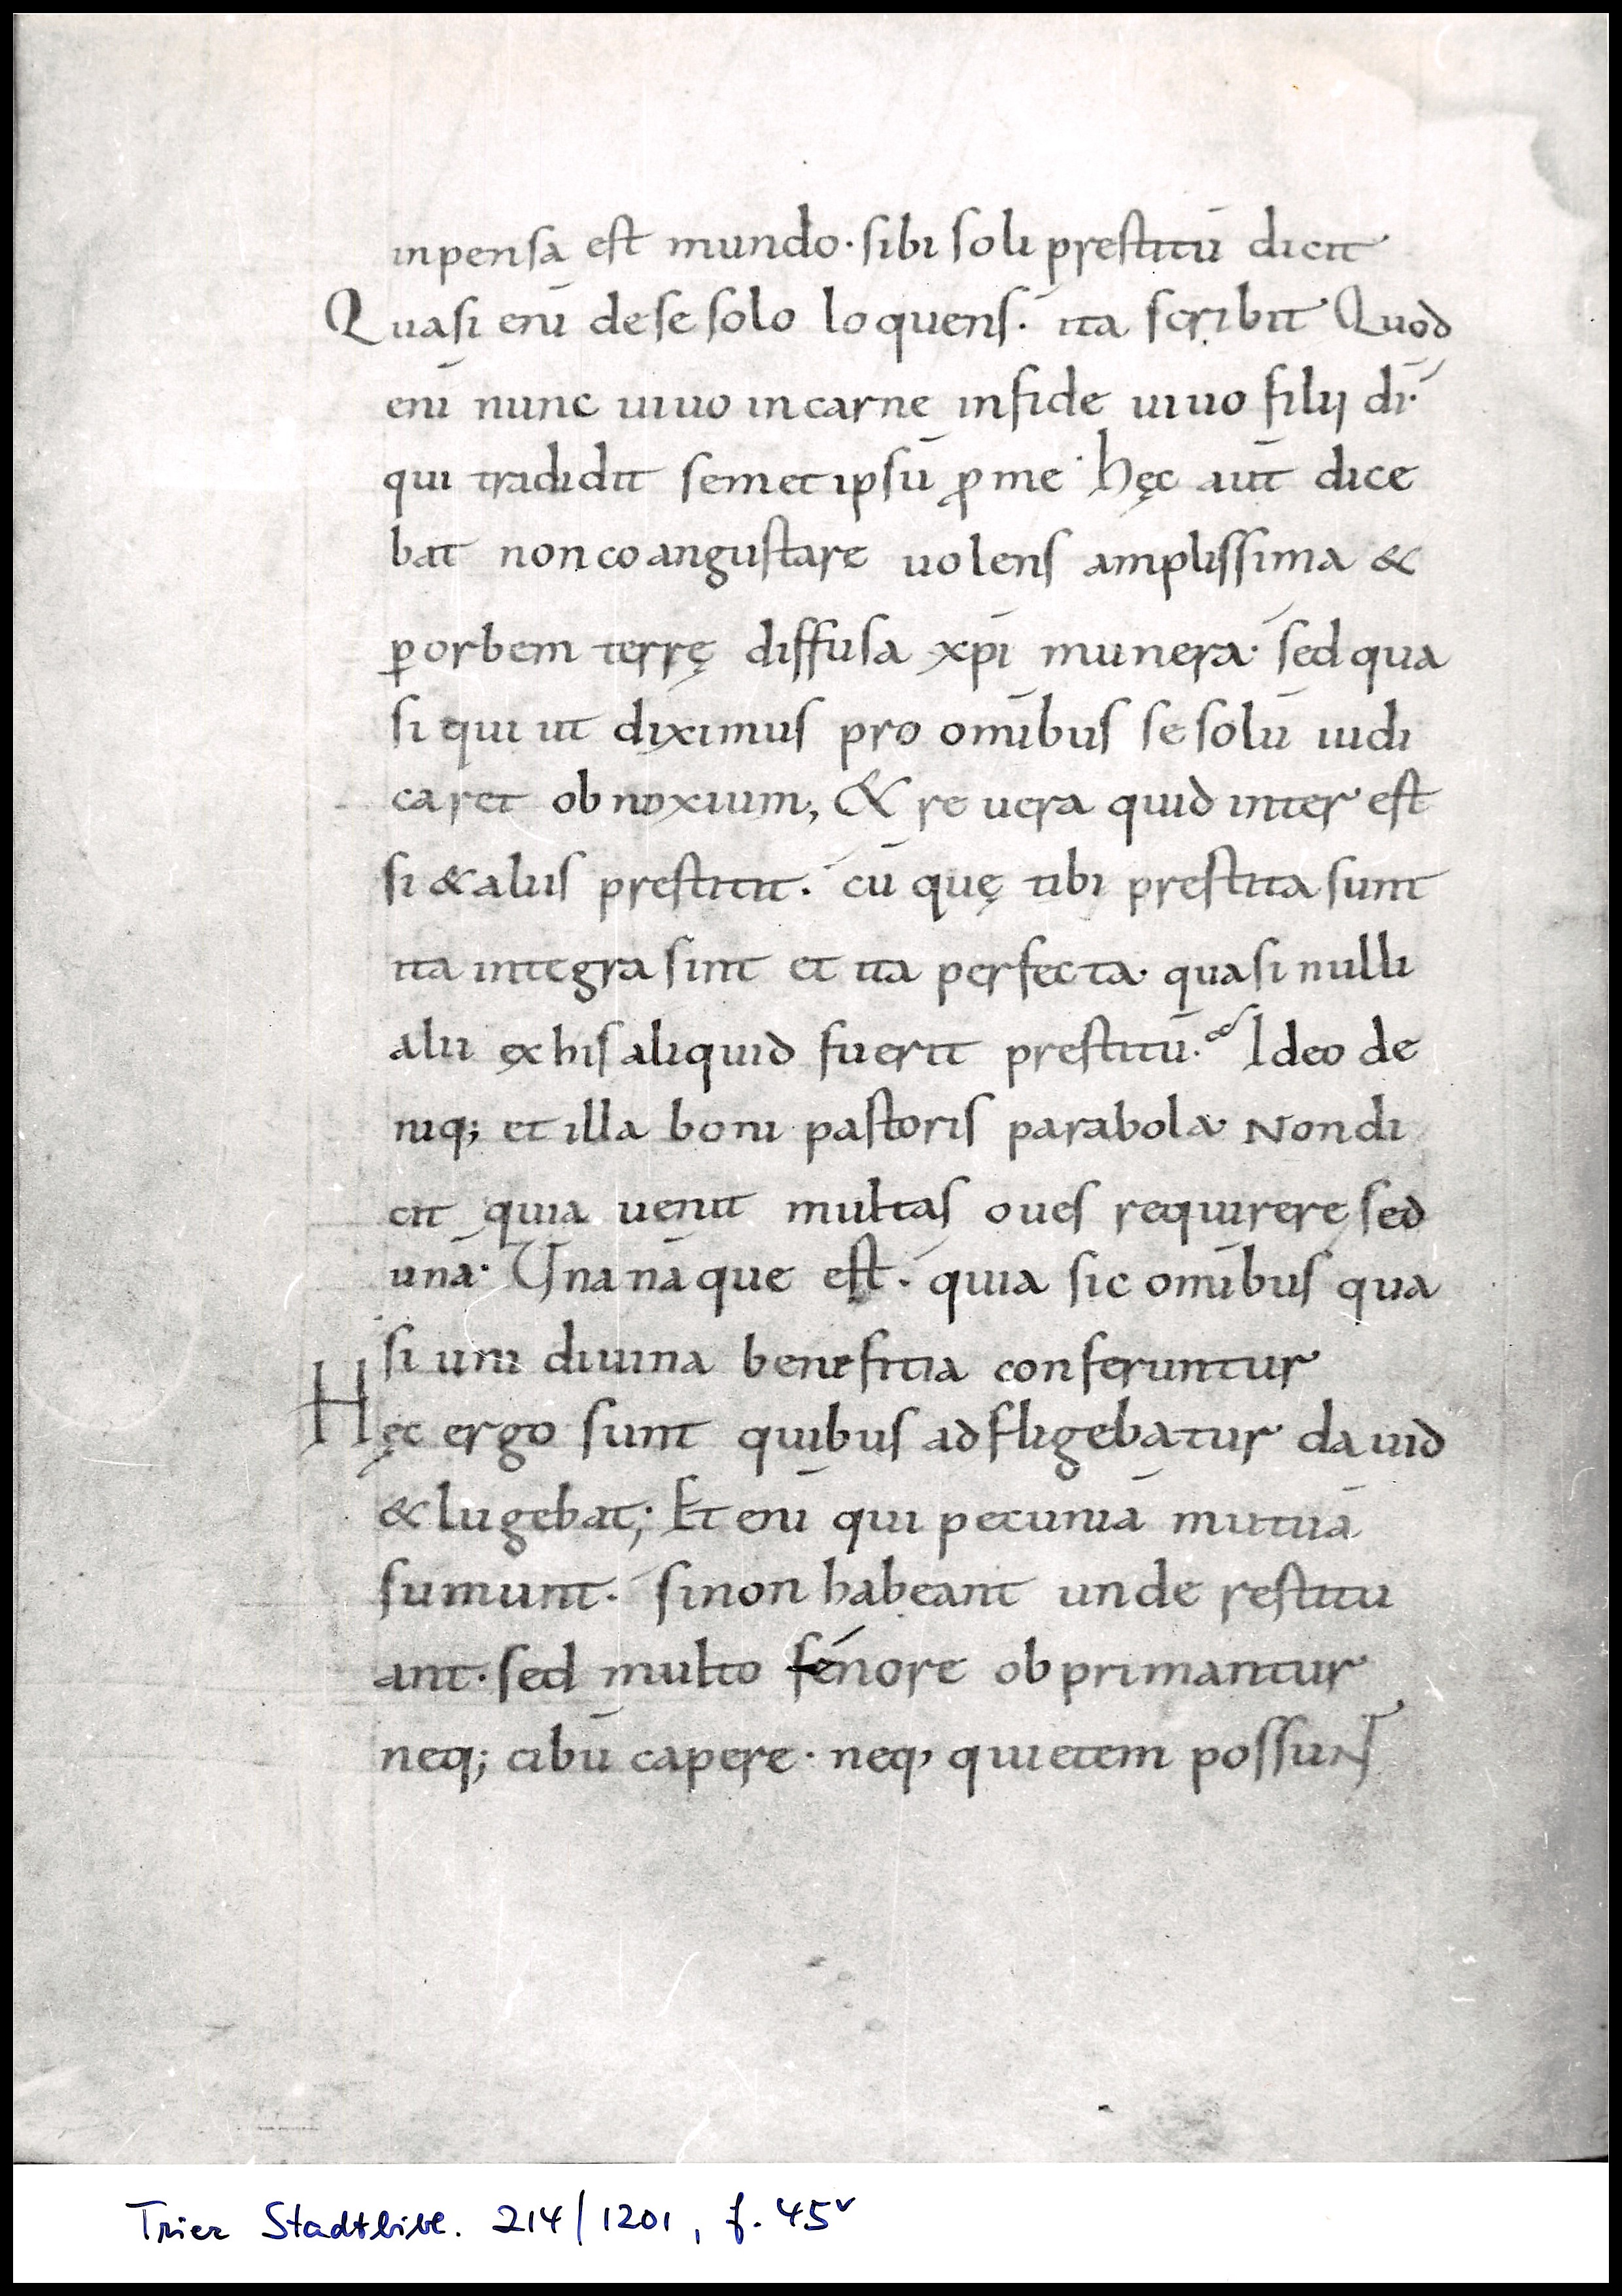 inpensa est mundo · sibi soli prestitū dicit
Quasi enī de se solo loquens · ita scribit Quod
enī nunc uiuo in carne in fide uiuo filii dī ·
qui tradidit semet ipsū ꝓ me · hęc aūt dice
bat non coangustare uolens amplissima &
ꝑ orbem terrę diffusa xpī munera · sed qua
si qui ut diximus pro omībus se solū iudi
caret obnoxium ; & re uera quid inter est
si & aliis prestitit · cū quę tibi prestita sunt
ita integra sint et ita perfecta · quasi nulli
alii ex his aliquid fuerit prestitū · Ideo de
niq; et illa boni pastoris parabola · Non di
cit quia uenit multas oues requirere sed
unā · Una nāque est · quia sic omībus qua
si uni diuina benefitia conferuntur
Hęc ergo sunt quibus adfligebatur dauid
& lugebat ; Et enī qui pecuniā mutuā
sumunt · si non habeant unde restitu
ant · sed multo fénore obprimantur
neq; cibū capere · neq; quietem possunt
Trier Stadtbibl. 214/1201, f. 45v